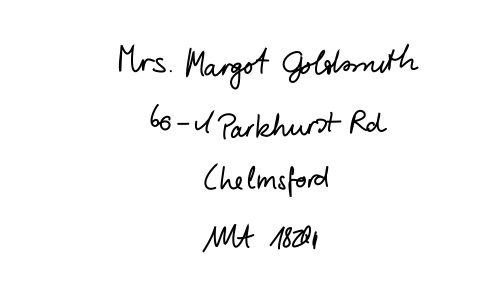 Mrs. Margot Goldsmith
Parkhurst Rd
Chelmsford
MA